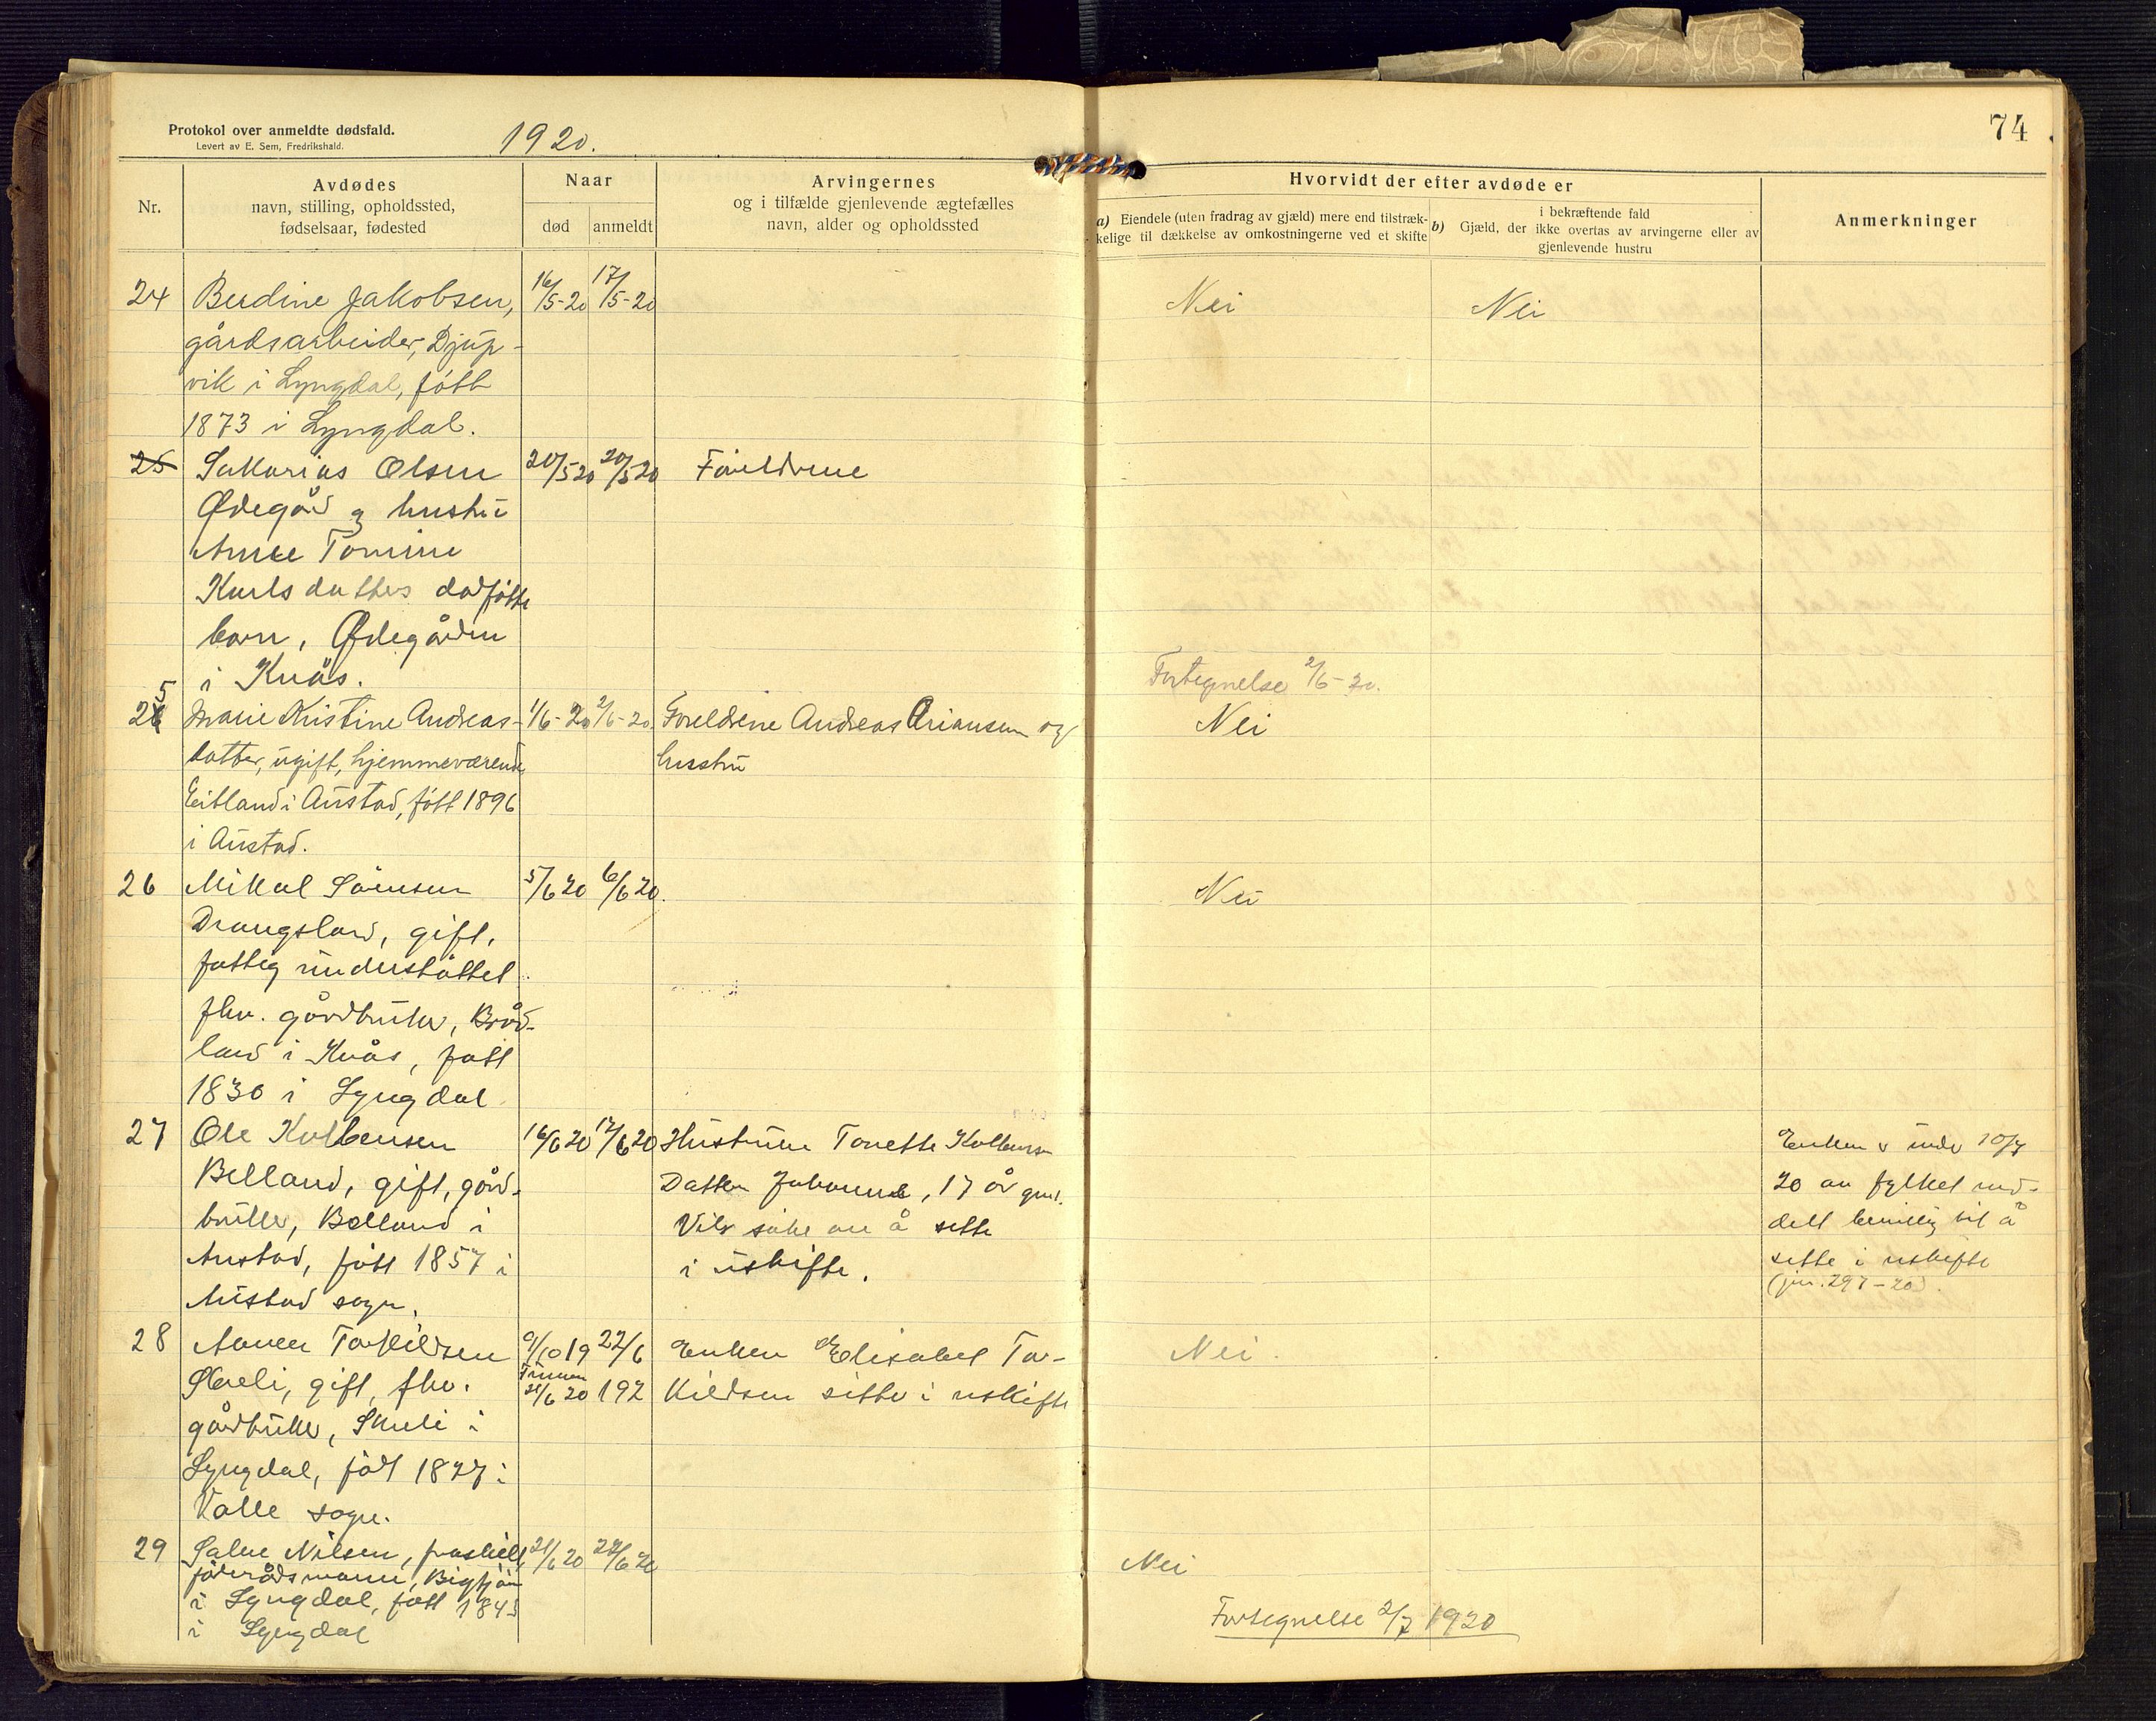 Protokol over anmeldte dødsfald.
Levert av E. Sem, Fredrikshald.
1920.
74
Nr.
Avdødes
navn, stilling, opholdssted,
fødselsaar, fødested
Naar
død
anmeldt
Arvingernes
og i tilfælde gjenlevende ægtefælles
navn, alder og opholdssted
Hvorvidt der efter avdøde er
a) Eiendele (uten fradrag av gjæld) mere end tilstræk-
kelige til dækkelse av omkostningerne ved et skifte
i bekræftende fald
b) Gjæld, der ikke overtas av arvingerne eller av
gjenlevende hustru
Anmerkninger
24 Berdine Jakobsen, 16/5-20 17/5-20 Nei Nei
gårdsarbeider, Djup-
vik i Lyngdal, født
1873 i Lyngdal.
25 Sakarias Olsen 20/5 20 20/5 20 Foreldrene
Ødegård og hustru
Anne Tomine
Karlsdatters dødfødte
barn, Ødegården
i Kvås.
Fortegnelse 2/6-20.
25 Marie Kristine Andreas- 1/6-20 2/6-20. Foreldrene Andreas Ariansen og Nei
datter, ugift, hjemmeværende hustru
Eitland i Austad, født 1896
i Austad.
26 Mikal Sørensen 5/6 20 6/6 20. Nei
Drangsland, gift,
fattigunderstøttet
fhv. gårdbruker, Bråd-
land i Kvås, født
1830 i Lyngdal
27 Ole Kolbensen 16/6 20 17/6 20 Hustruen Tonette Kolbensen
Belland, gift, gård- Datter Johanne, 17 år gml.
bruker, Belland i Vil søke om å sitte
Austad, født 1857 i i uskifte.
Austad sogn.
Enken er under 10/7
20 av fylket med-
delt bevilling til å
sitte i uskifte
(jnr. 297-20).
28 Torkildsen 9/10 19 22/6 Enken Elisabet Tor- Nei.
Skreli, gift, fhv. 21/6 20 192 kildsen sitter i uskifte
gårdbruker, Skreli i
Lyngdal, født 1847 i
Valle sogn.
29 Salve Nilsen, fraskilt, 21/6 20 22/6 20 Nei
føderådsmann, Bigtjøn
i Lyngdal, født 1845
i Lyngdal
Fortegnelse 2/7 1920